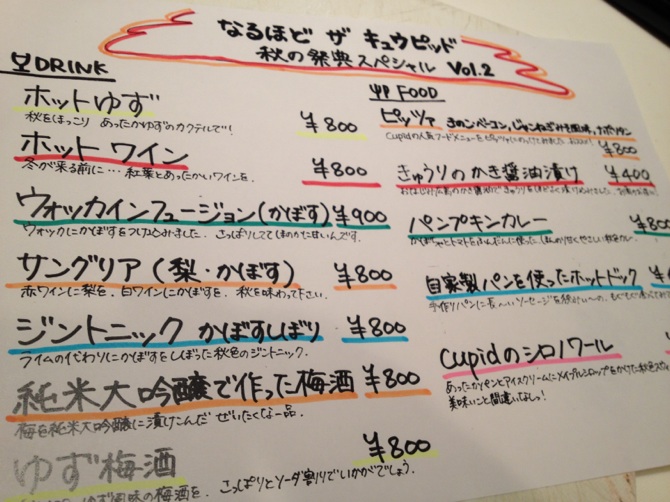 なるほど ザ キュウピッド
秋の祭典スペシャル Vol.2
DRINK
ホットゆず ¥800
秋をほっこり あったかゆずのカクテルで!
ホットワイン ¥800
冬が来る前に… 紅葉とあったかいワインを.
ウォッカインフュージョン(かぼす) ¥900
ウォッカにかぼすをつけこみました. さっぱりしててほのかに甘いんです.
サングリア(梨・かぼす) ¥800
赤ワインに梨を. 白ワインにかぼすを. 秋を味わって下さい.
ジントニック かぼすしぼり ¥800
ライムの代わりにかぼすをしぼった秋色のジントニック.
純米大吟醸で作った梅酒 ¥800
梅を純米大吟醸に漬けこんだ ぜいたくな一品.
ゆず梅酒 ¥800
ゆず風味の梅酒を. さっぱりとソーダ割りでいかがでしょう.
FOOD
ピッツァ きのこベーコン, じゃこねぎみそ風味, ナポリタン
Cupidの人気フードメニューをピッツァに ¥800
きゅうりのかき醤油漬け ¥400
パンプキンカレー ¥80
かぼちゃとトマトをふんだんに使った
自家製パンを使ったホットドック ¥
手作りパンに長〜いソーセージを
Cupidのシロノワール
あったかパンとアイスクリームにメイプルシロップをかけた
美味いこと間違いなしっ!